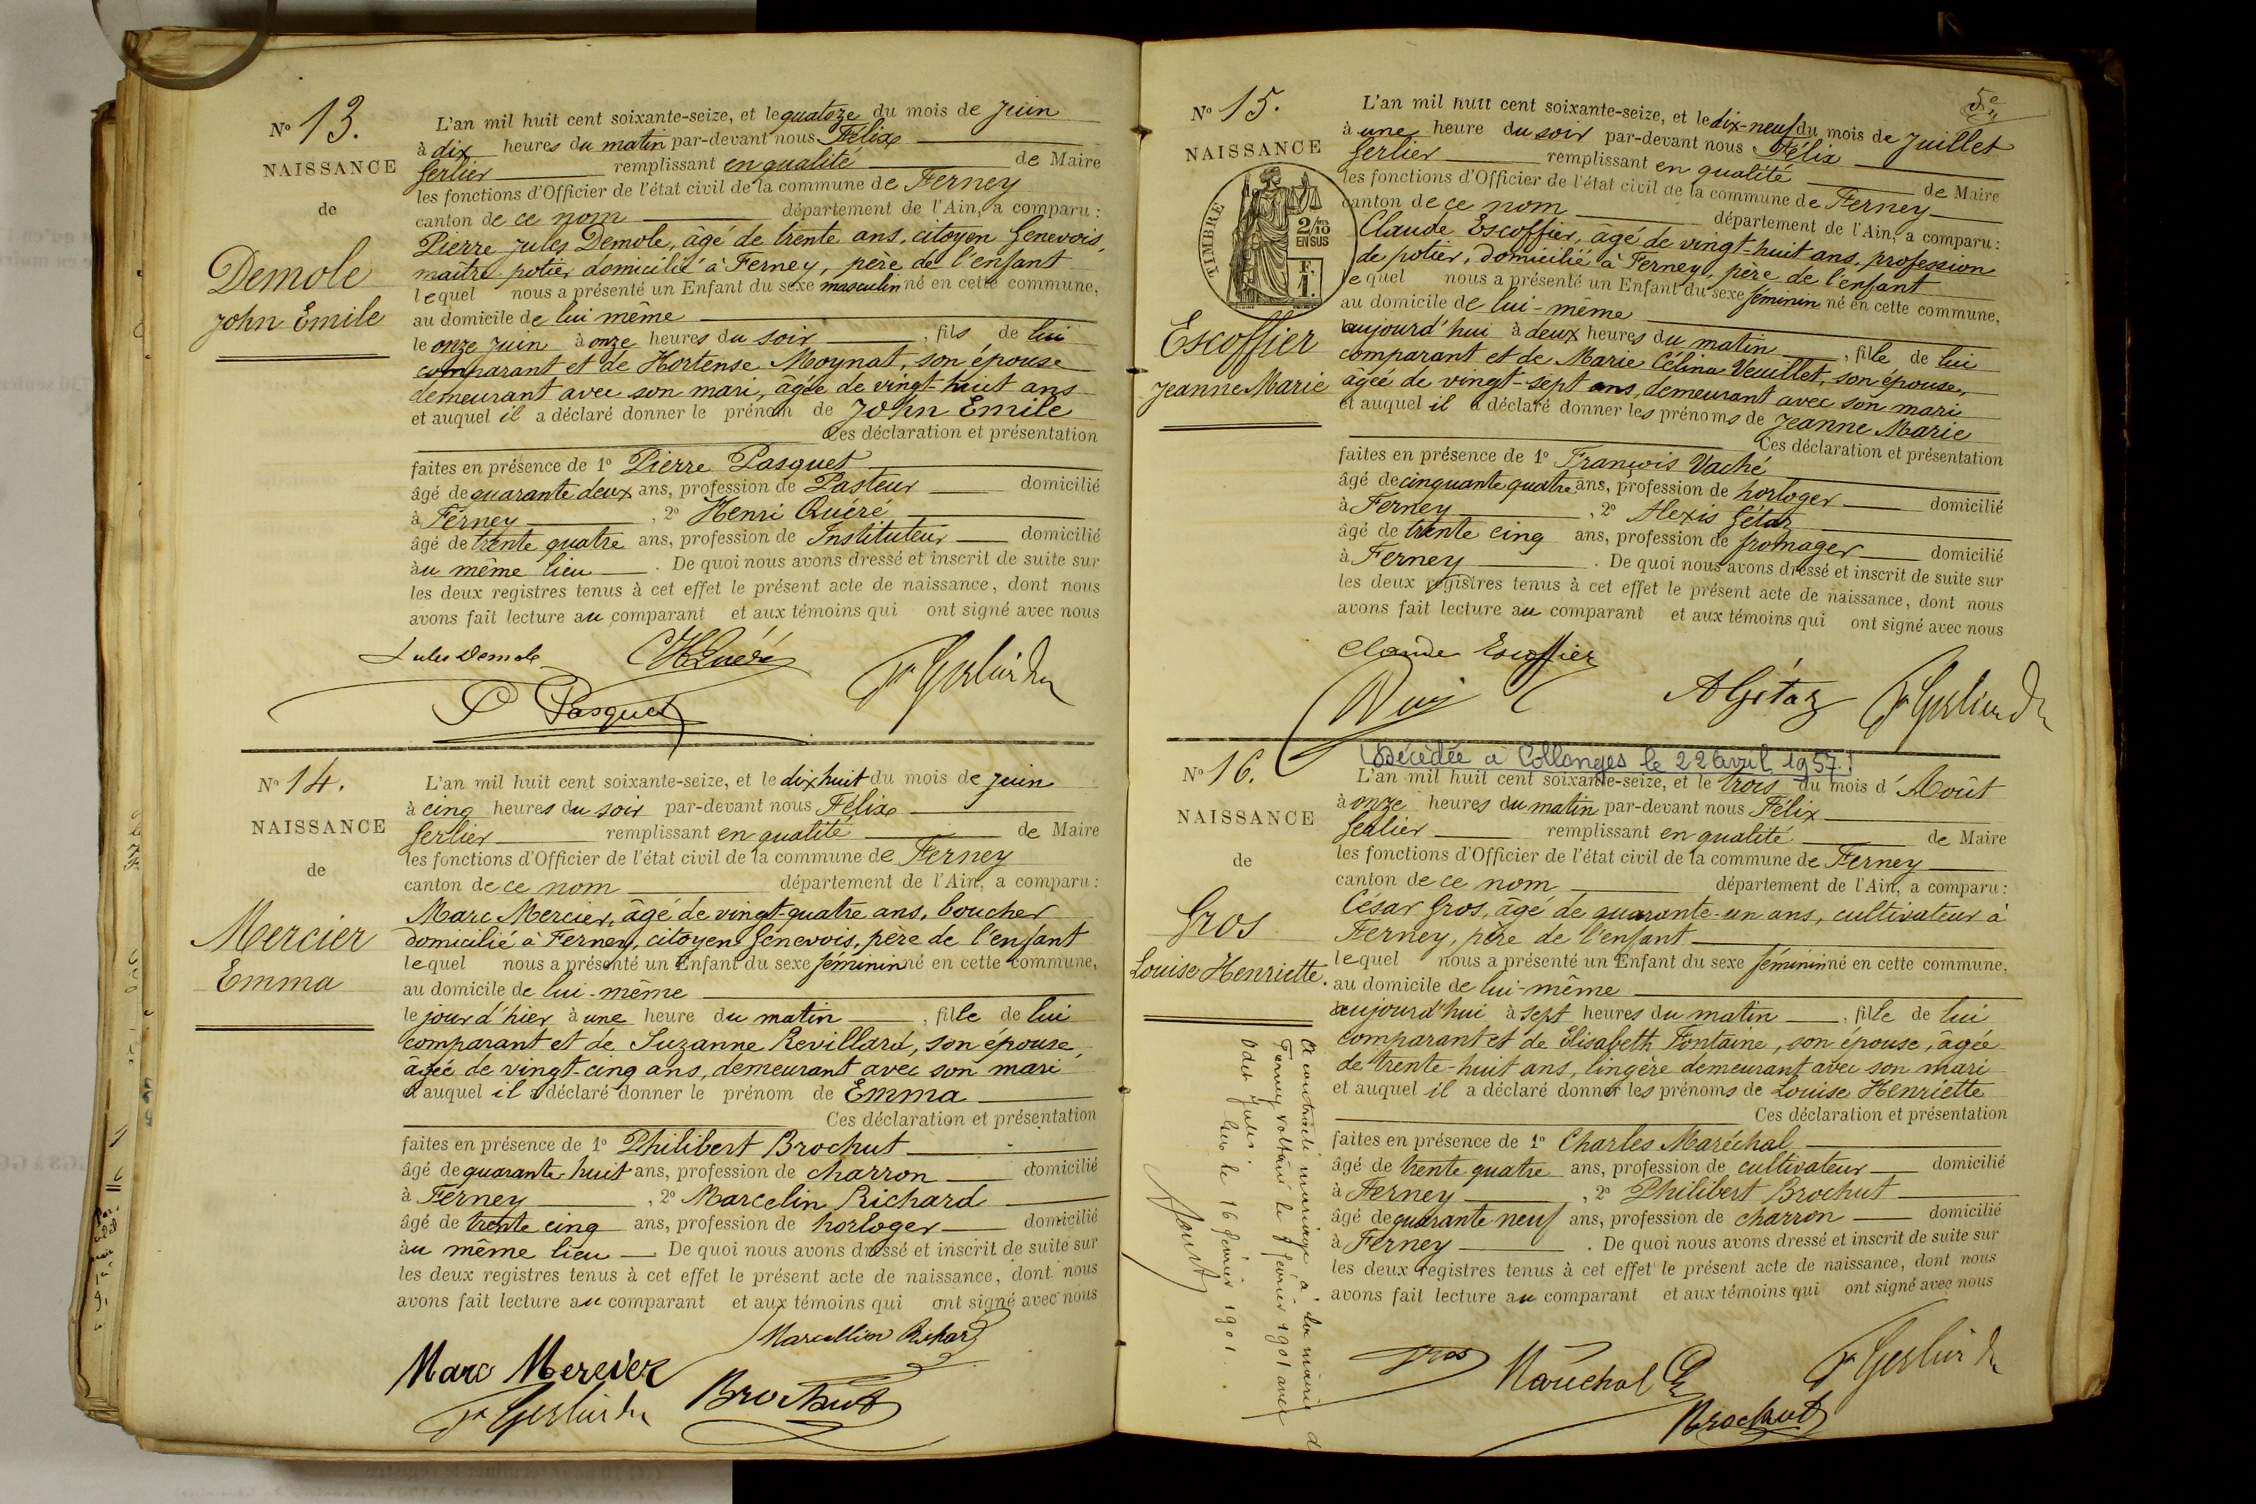 N° 13.
NAISSANCE
de
Demole
John Emile
L'an mil huit cent soixante-seize, et le quatorze du mois de Juin
à dix heures du matin par-devant nous Félix
Gerlier remplissant en qualité de Maire
les fonctions d'Officier de l'état civil de la commune de Ferney
canton de ce nom département de l'Ain, a comparu :
Pierre Jules Demole, âgé de trente ans, citoyen Genevois,
maître potier domicilié à Ferney, père de l'enfant
lequel nous a présenté un Enfant du sexe masculin né en cette commune,
au domicile de lui même
le onze Juin à onze heures du soir, fils de lui
comparant et de Hortense Moynat, son épouse
demeurant avec son mari, âgée de vingt-huit ans
et auquel il a déclaré donner le prénom de John Emile
Ces déclaration et présentation
faites en présence de 1° Pierre Pasquet
âgé de quarante deux ans, profession de Pasteur domicilié
à Ferney, 2° Henri Quéré
âgé de trente quatre ans, profession de Instituteur domicilié
au même lieu. De quoi nous avons dressé et inscrit de suite sur
les deux registres tenus à cet effet le présent acte de naissance, dont nous
avons fait lecture au comparant et aux témoins qui ont signé avec nous
Jules Demole HQuéré
P Pasquet
N° 14.
NAISSANCE
de
Mercier
Emma
L'an mil huit cent soixante-seize, et le dix huit du mois de Juin
à cinq heures du soir par-devant nous Félix
Gerlier remplissant en qualité de Maire
les fonctions d'Officier de l'état civil de la commune de Ferney
canton de ce nom département de l'Ain, a comparu :
Marc Mercier, âgé de vingt-quatre ans, boucher
domicilié à Ferney, citoyen Genevois, père de l'enfant
lequel nous a présenté un Enfant du sexe féminin né en cette commune,
au domicile de lui-même
le jour d'hier à une heure du matin, fille de lui
comparant et de Suzanne Revillard, son épouse,
âgée de vingt-cinq ans, demeurant avec son mari
et auquel il a déclaré donner le prénom de Emma
Ces déclaration et présentation
faites en présence de 1° Philibert Brochut
âgé de quarante-huit ans, profession de charron domicilié
à Ferney, 2° Marcelin Richard
âgé de trente cinq ans, profession de horloger domicilié
au même lieu. De quoi nous avons dressé et inscrit de suite sur
les deux registres tenus à cet effet le présent acte de naissance, dont nous
avons fait lecture au comparant et aux témoins qui ont signé avec nous
Marcellin Richard
Marc Mercier
Brochut
5e
N° 15.
NAISSANCE
TIMBRE
2/10
EN SUS
F.
1.
Escoffier
Jeanne Marie
L'an mil huit cent soixante-seize, et le dix-neuf du mois de Juillet
à une heure du soir par-devant nous Félix
Gerlier remplissant en qualité de Maire
les fonctions d'Officier de l'état civil de la commune de Ferney
canton de ce nom département de l'Ain, a comparu :
Claude Escoffier, âgé de vingt-huit ans, profession
de potier, domicilié à Ferney, père de l'enfant
lequel nous a présenté un Enfant du sexe féminin né en cette commune,
au domicile de lui-même
aujourd'hui à deux heures du matin, fille de lui
comparant et de Marie Célina Veuillet, son épouse,
âgée de vingt-sept ans, demeurant avec son mari
et auquel il a déclaré donner les prénoms de Jeanne Marie
Ces déclaration et présentation
faites en présence de 1° François Vaché
âgé de cinquante quatre ans, profession de horloger domicilié
à Ferney, 2° Alexis Gétaz
âgé de trente cinq ans, profession de fromager domicilié
à Ferney. De quoi nous avons dressé et inscrit de suite sur
les deux registres tenus à cet effet le présent acte de naissance, dont nous
avons fait lecture au comparant et aux témoins qui ont signé avec nous
Claude Escoffier
AGétaz
Décédée à Collonges le 22 avril 1957.
N° 16.
NAISSANCE
de
Gros
Louise Henriette.
L'an mil huit cent soixante-seize, et le trois du mois d'Août
à onze heures du matin par-devant nous Félix
Gerlier remplissant en qualité de Maire
les fonctions d'Officier de l'état civil de la commune de Ferney
canton de ce nom département de l'Ain, a comparu :
César Gros, âgé de quarante-un ans, cultivateur à
Ferney, père de l'enfant
lequel nous a présenté un Enfant du sexe féminin né en cette commune,
au domicile de lui-même
aujourd'hui à sept heures du matin, fille de lui
comparant et de Elisabeth Fontaine, son épouse, âgée
de trente-huit ans, lingère demeurant avec son mari
et auquel il a déclaré donner les prénoms de Louise Henriette
Ces déclaration et présentation
faites en présence de 1° Charles Maréchal
âgé de trente quatre ans, profession de cultivateur domicilié
à Ferney, 2° Philibert Brochut
âgé de quarante-neuf ans, profession de charron domicilié
à Ferney. De quoi nous avons dressé et inscrit de suite sur
les deux registres tenus à cet effet le présent acte de naissance, dont nous
avons fait lecture au comparant et aux témoins qui ont signé avec nous
Gros Maréchal
Brochut
A contracté mariage à la mairie d
Ferney Voltaire le 9 février 1901 avec
Odet Jules.
le 16 février 1901.